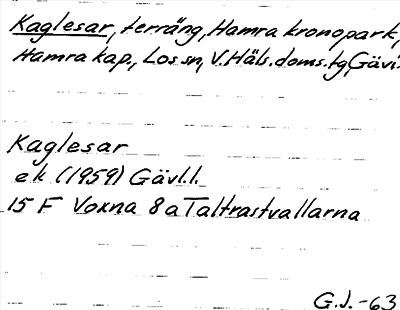 Kaglesar, terräng, Hamra kronopark,
Hamra kap., Los sn, V. Häls. doms.tg, Gävl.
Kaglesar
ek (1959) Gävl.l.
15 F Voxna 8 a Taltrastvallarna
G.J. -63